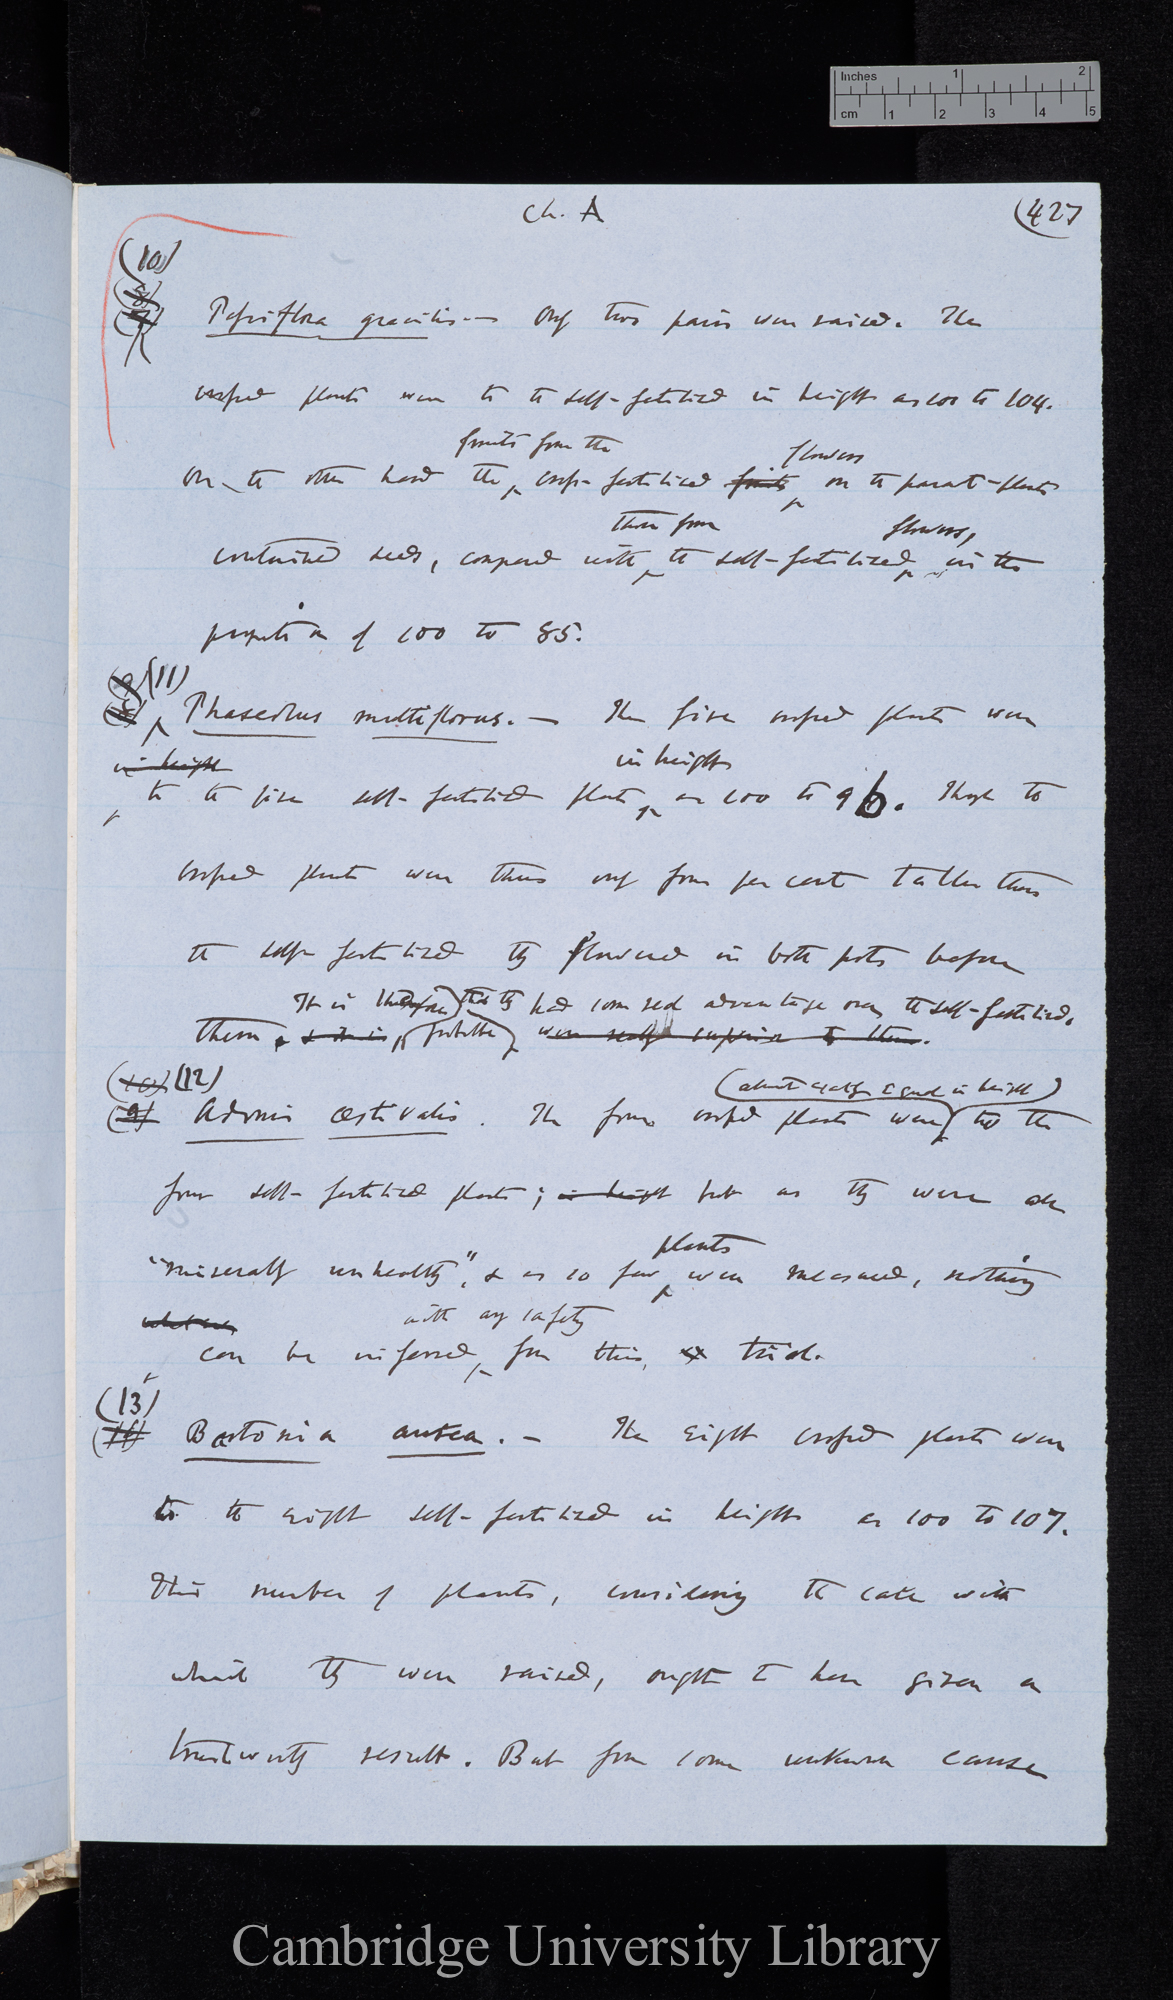 Inches 1 2
cm 1 2 3 4 5
Ch. A (427
(10)
Passiflora gracilis — Only two pairs were raised. The
crossed plants were to the self-fertilised in height as 100 to 104.
fruits from the flowers
On the other hand the cross-fertilised fruits on the parent-plants
those from flowers,
contained seeds, compared with the self-fertilised in the
proportion of 100 to 85.
(11)
Phaseolus multiflorus. — The five crossed plants were
in height in height
to the five self-fertilised plants as 100 to 96. Though the
crossed plants were thus only four per cent taller than
the self-fertilised they flowered in both pots before
It is therefore that they had some real advantage over the self-fertilised.
them, & it is probable were really superior to them.
(10) (12) (almost exactly equal in height)
(9) Adonis æstivalis. The four crossed plants were to the
four self-fertilised plants; in height but as they were all
plants
"miserably unhealthy", & as so few were measured, nothing
whatever with any safety
can be inferred from this trial.
(13)
(11) Bartonia aurea. — The eight crossed plants were
to the eight self-fertilised in height as 100 to 107.
This number of plants, considering the care with
which they were raised, ought to have given a
trustworthy result. But from some unknown cause
Cambridge University Library